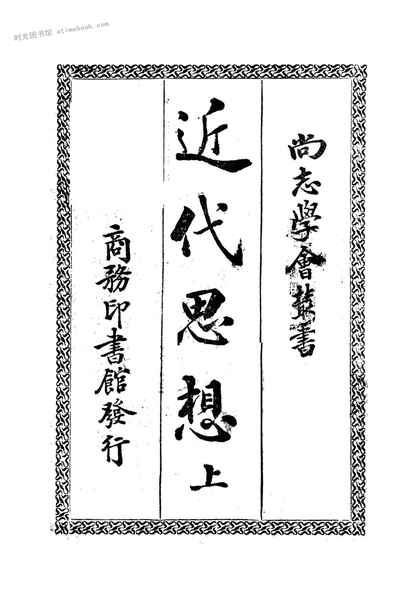 时光图书馆 atimebook.com
尚志學會叢書
近代思想 上
商務印書館發行